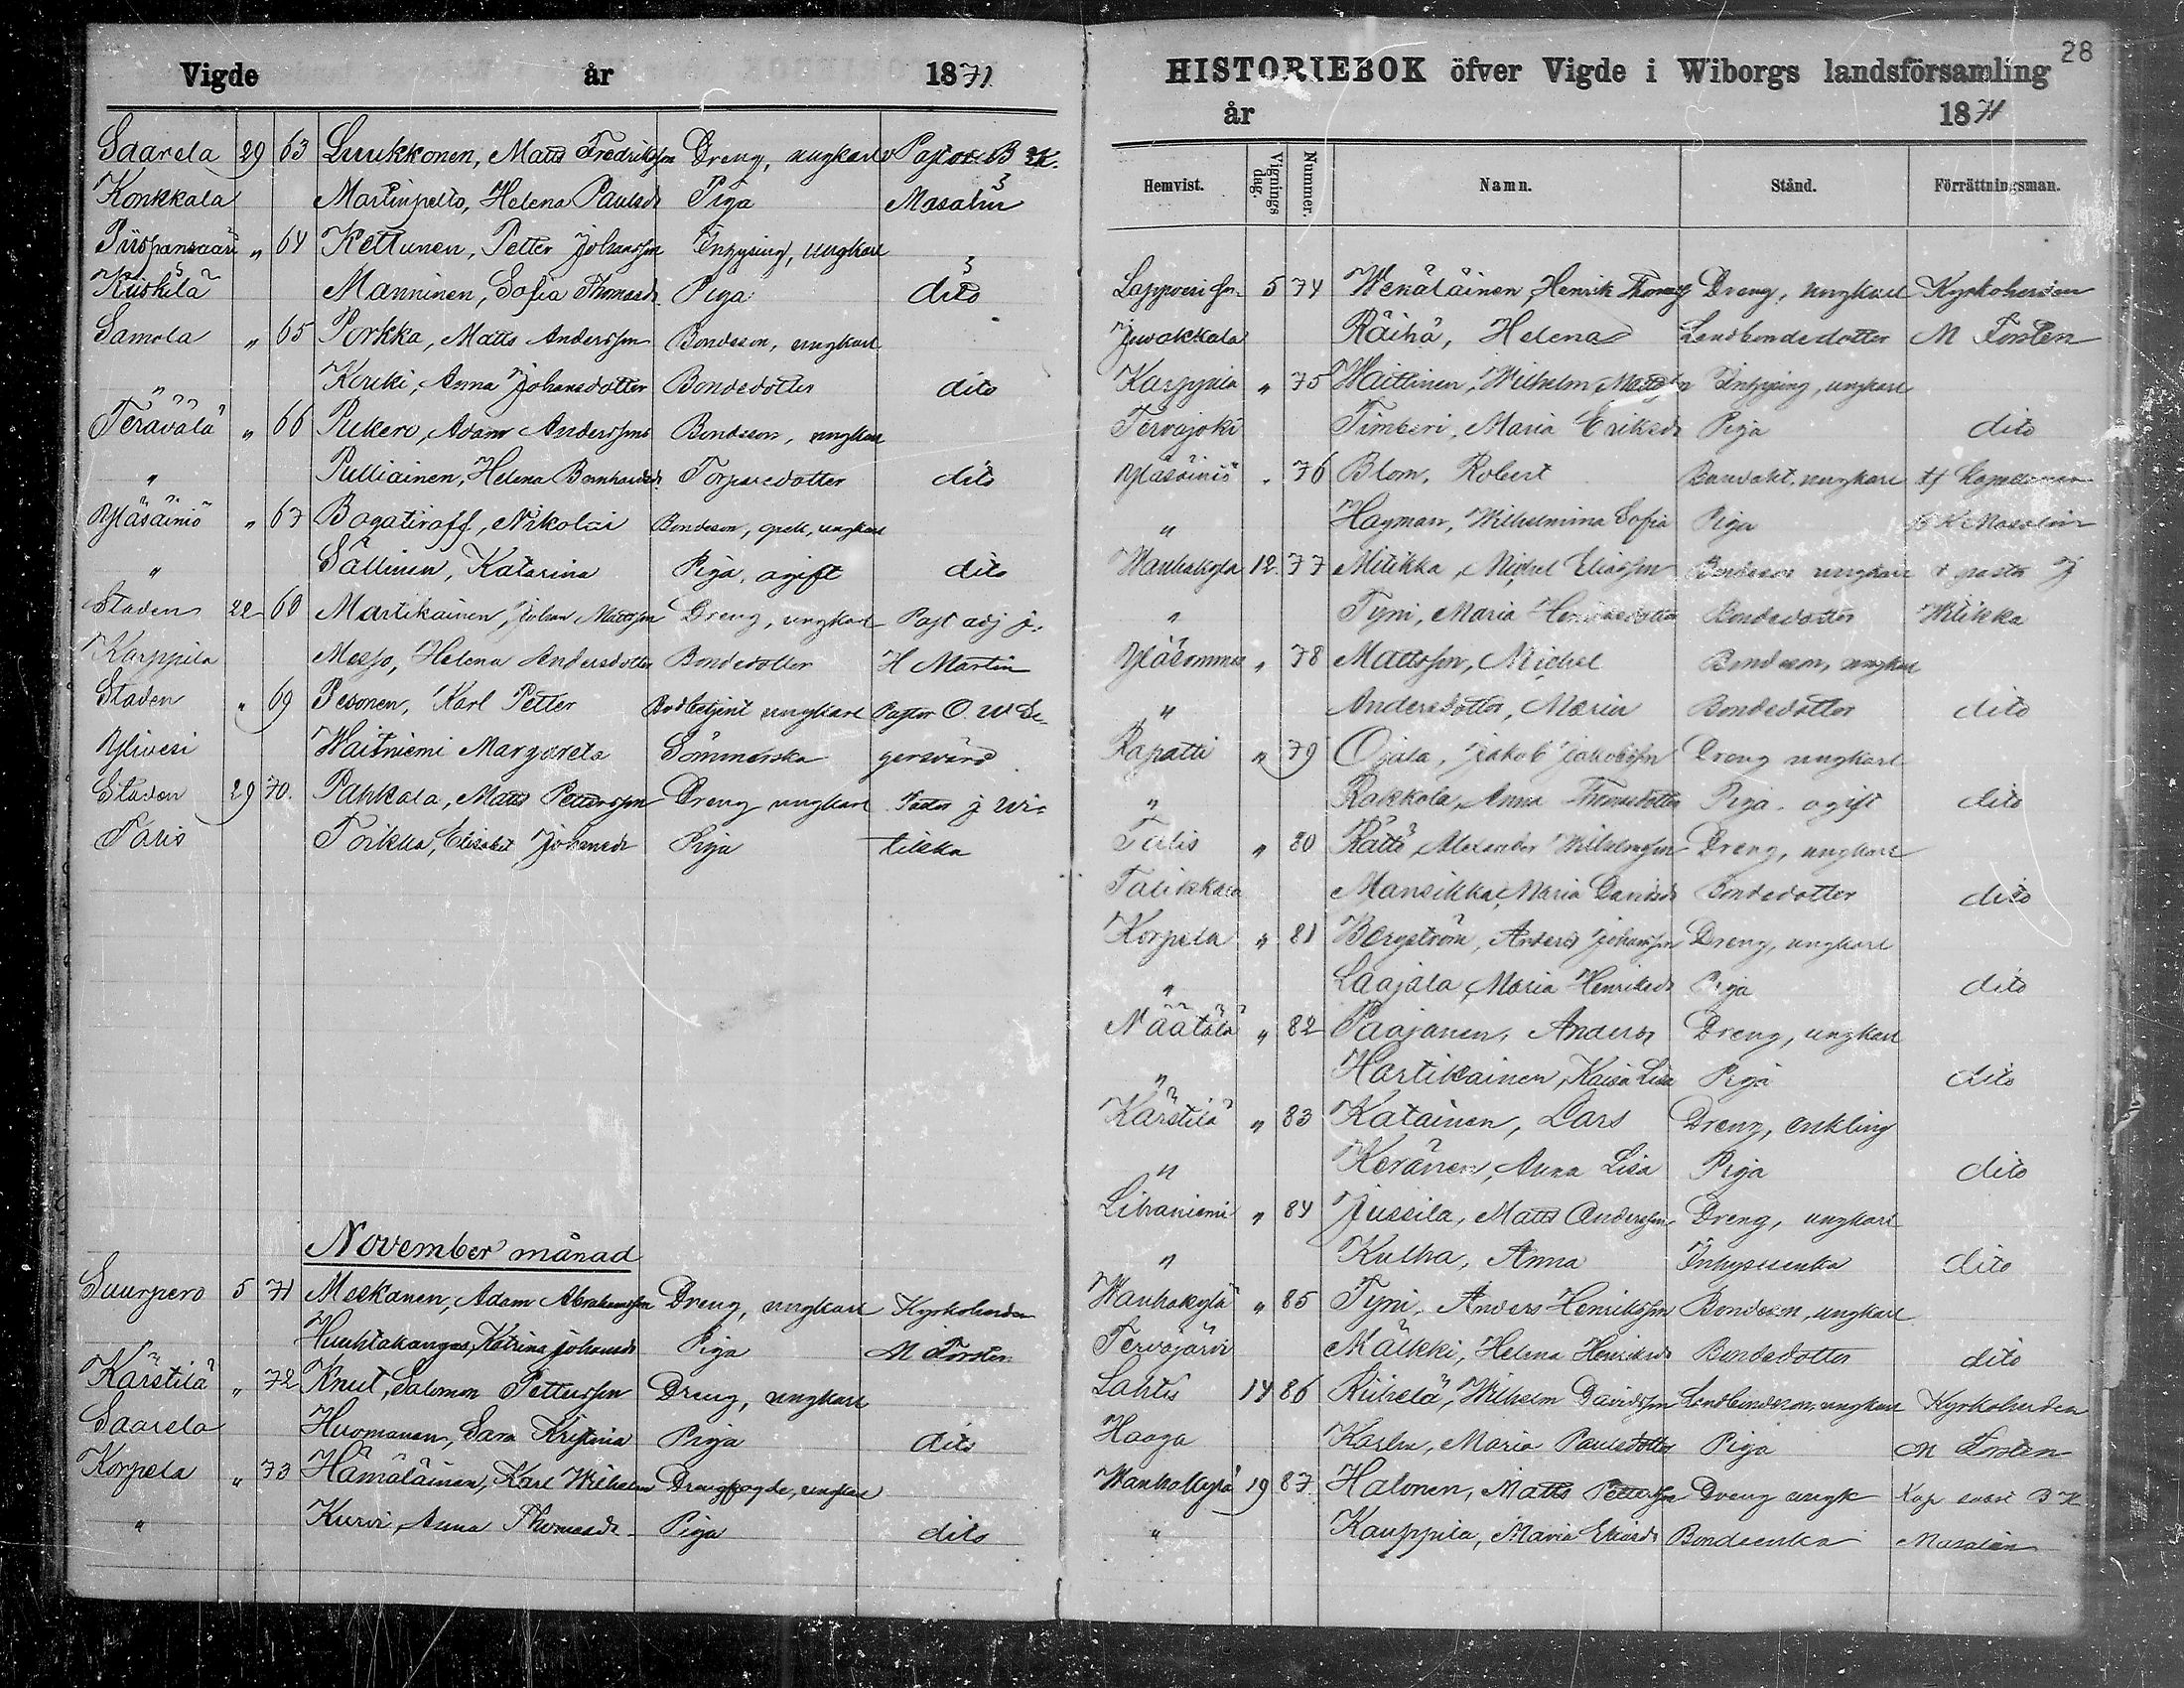 Vigde år 1871
Saarela 29 63 Luukkonen, Matts Fredriksson Dreng, ungkarl Pastor B K.
Konkkala Martinpelto, Helena Paulsd Piga Masalin
Piispansaari " 64 Kettunen, Petter Johansson Inhysing, ungkarl
Kiiskilä Manninen, Sofia Thomasd. Piga dito
Samola " 65 Porkka, Matts Andersson Bondeson, ungkarl
" Kurki, Anna Johansdotter Bondedotter dito
Terävälä " 66 Pukero, Adam Anderssons Bondeson, ungkarl
" Pulliainen, Helena Bernhardsd. Torparedotter dito
Yläsäiniö " 67 Bogatiroff, Nikolai Bondeson, ungkarl
" Sällinen, Katarina Piga, ogift dito
Staden 22 68 Martikainen, Johan Mattsson Dreng, ungkarl Past adj j.
Karppila Mesjo, Helena Andersdotter Bondedotter H Martin
Staden " 69 Pesonen, Karl Petter Bodbetjent ungkarl Pastor O. W Se-
Ylivesi Waitniemi Margareta Sömmerska gersvärd
Staden 29 70. Pakkala, Matts Pettersson Dreng ungkarl Pastor j Wi-
Talis Torikka, Elisabet Johansd Piga tikka
November månad
Suurpero 5 71 Meskanen, Adam Abrahamsson Dreng, ungkarl Kyrkoherden
" Huuhtakangas, Katrina Johansd Piga M Torsten
Kärstilä " 72 Knut, Salomon Pettersson Dreng, ungkarl
Saarela Huomanen, Sara Kristina Piga dito
Korpela " 73 Hämäläinen, Karl Wilhelm Drengfogde, ungkarl
" Kurvi, Anna Thomasd. Piga dito
28
HISTORIEBOK öfver Vigde i Wiborgs landsförsamling
år 1871
Hemvist. Vignings dag. Nummer. Namn. Stånd. Förrättningsman.
Lappvesi 5 74 Wenäläinen, Henrik Thomass Dreng, ungkarl Kyrkoherden
Juvakkala Räihä, Helena Landbondedotter M Torsten
Karppila " 75 Waittinen, Wilhelm Mattsson Inhysing, ungkarl
Tervajoki Timperi, Maria Eriksd Piga dito
Yläsäiniö " 76 Blom, Robert Banvakt, ungkarl tf Kapellanen
" Hagman, Wilhelmina Sofia Piga B K Masalin
Wanhakylä 12. 77 Mitikka, Michel Eliasson Bondeson ungkarl pastor J
" Tyni, Maria Henriksdotter Bondedotter Witikka
Yläsommee " 78 Mattsson, Michel Bondeson, ungkarl
" Andersdotter, Maria Bondedotter dito
Rapatti " 79 Ojala, Jakob Jakobsson Dreng ungkarl
" Rakkola, Anna Thomasdotter Piga. ogift dito
Talis " 80 Rättö, Alexander Wilhelmsson Dreng, ungkarl
Talikkala Mansikka, Maria Davidsd Bondedotter dito
Korpela " 81 Bergström, Anders Johansson Dreng, ungkarl
" Laajala, Maria Henriksd Piga dito
Näätälä " 82 Paajanen, Anders Dreng, ungkarl
" Hartikainen, Kaisa Lisa Piga dito
Kärstilä " 83 Katainen, Lars Dreng, enkling
" Keränen, Anna Lisa Piga dito
Lihaniemi " 84 Jussila, Matts Andersson Dreng, ungkarl
" Kulha, Anna Inhysesenka dito
Wanhakylä " 85 Tyni, Anders Henriksson Bondeson, ungkarl
Tervajärvi Mälkki, Helena Henriksd Bondedotter dito
Lahtis 14 86 Riihelä, Wilhelm Davidsson Landbondeson, ungkarl Kyrkoherden
Haaga Karhu, Maria Paulsdotter Piga M Torsten
Wanhakylä 19 87. Halonen, Matts Pettersson Dreng ungk Kap B K
" Kauppila, Maria Bondeenka Masalin